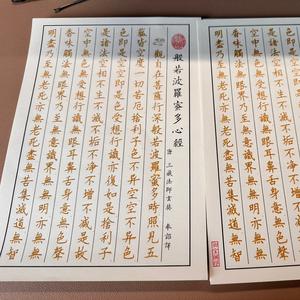 般若波羅蜜多心經
唐 三藏法師玄奘 奉詔譯
觀自在菩薩行深般若波羅蜜多時照見五
蘊皆空度一切苦厄捨利子色不異空空不異色
色即是空空即是色受想行識亦復如是捨利子
是諸法空相不生不滅不垢不淨不增不減是故
空中無色無受想行識無眼耳鼻舌身意無色聲
香味觸法無眼界乃至無意識界無無明亦無無
明盡乃至無老死亦無老死盡無苦集滅道無智
空中無色無受想行識無眼耳鼻舌身意無色聲
香味觸法無眼界乃至無意識界無無明亦無無
明盡乃至無老死亦無老死盡無苦集滅道無智